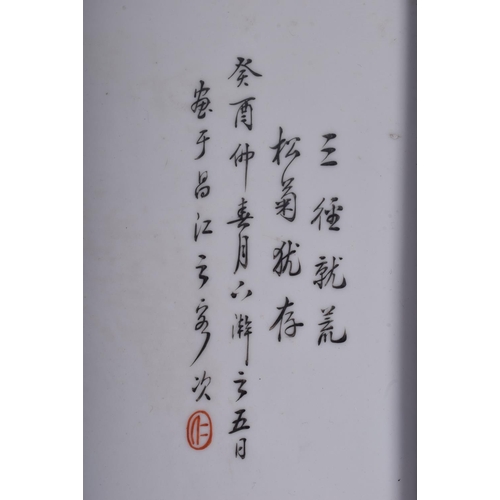 三徑就荒
松菊犹存
癸酉仲春月下澣之五日
畫于昌江之客次